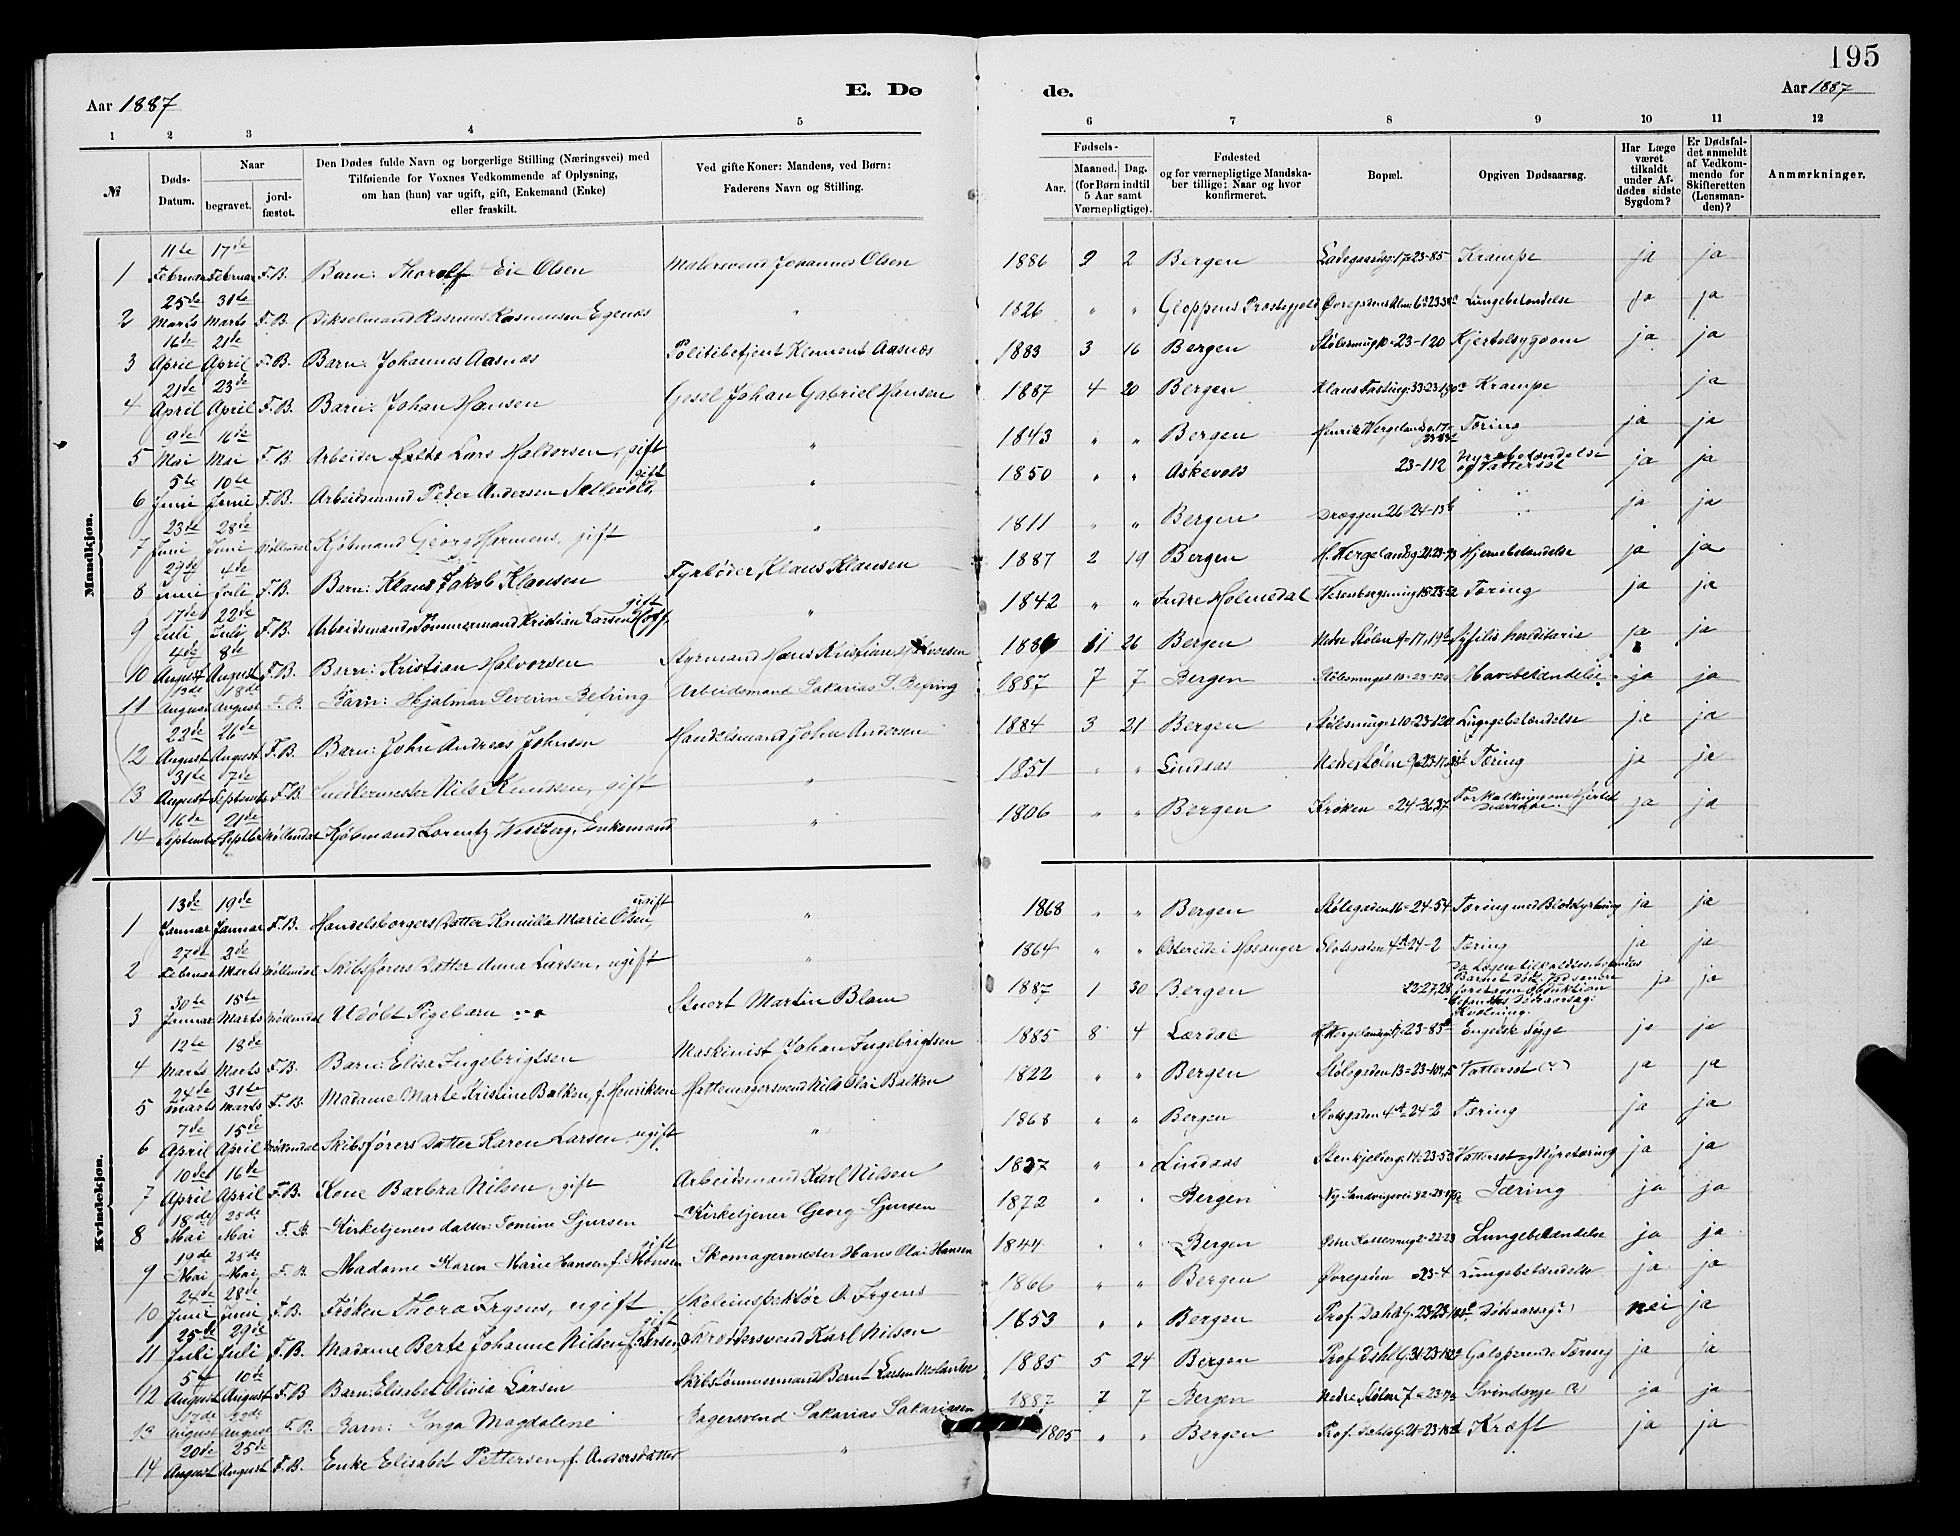 195
Aar 1887
E. Dø
de.
Aar 1887
1 2 3 4 5 6 7 8 9 10 11 12
№
Døds-Datum.
Naar
begravet.
jordfæstet.
Den Dødes fulde Navn og borgerlige Stilling (Næringsvei) med
Tilføiende for Voxnes Vedkommende af Oplysning,
om han (hun) var ugift, gift, Enkemand (Enke)
eller fraskilt.
Ved gifte Koner: Mandens, ved Børn:
Faderens Navn og Stilling.
Fødsels-
Aar.
Maaned. Dag.
(for Børn indtil
5 Aar samt
Værnepligtige).
Fødested
og for værnepligtige Mandskaber tillige: Naar og hvor
konfirmeret.
Bopæl.
Opgiven Dødsaarsag.
Har Læge
været
tilkaldt
under Afdødes sidste
Sygdom?
Er Dødsfaldet anmeldt
af Vedkommende for
Skifteretten
(Lensmanden)?
Anmærkninger.
Mandkjøn.
1 11te Februar 17de Februar F.B. Barn: Thorolf Eie Olsen Malersvend Johannes Olsen 1886 9 2 Bergen 17-23-85 Krampe ja ja
2 25de Marts 31te Marts F.B. Rasmus Rasmussen Egenæs " 1826 " " Gloppens Præstegjeld Lungebetændelse ja ja
3 16de April 21de April F.B. Barn: Johannes Aasnæs Politibetjent Klement Aasnæs 1883 3 16 Bergen Stølesmug 10-23-120 Kjertelsygdom ja ja
4 21de April 23de April F.B. Barn: Johan Hansen Gesel Johan Gabriel Hansen 1887 4 20 Bergen Krampe ja
5 9de Mai 16de Mai F.B. Arbeider Lars Haldorsen, gift " 1843 " " Bergen Tæring ja ja
6 5te Juni 10de Juni F.B. Arbeidsmand Peder Andersen Sellevold, gift " 1850 " " Askevold 23-112 Nyrebetændelse og Vattersot ja ja
7 23de Juni 28de Juni Møllendal Kjøbmand Georg Hermens, gift " 1811 " " Bergen Dræggen 26-24-13b " ja ja
8 29de Juni 4de Juli F.B. Barn: Klaus Jakob Klausen Fyrbøder Klaus Klausen 1887 2 19 Bergen Hjernebetændelse ja ja
9 17de Juli 22de Juli F.B. Arbeidsmand, Tømmermand Kristian Larsen Hoff, gift " 1842 " " Indre Holmedal Tæring ja ja
10 4de August 8de August F.B. Barn: Kristian Halvorsen Styrmand Hans Kristian Halvorsen 1886 11 26 Bergen Nedre Stølen Syfilis hereditaria ja ja
11 13de August 18de August F.B. Barn: Hjalmar Severin Befring Arbeidsmand Sakarias S. Befring 1887 7 7 Bergen Stølesmuget 10-23-120 Mavebetændelse ja ja
12 23de August 26de August F.B. Barn: John Andreas Johnsen Handelsmand John Andersen 1884 3 21 Bergen Stølesmuget 10-23-120 Lungebetændelse ja ja
13 31te August 7de Septembr F.B. Snedkermester Nils Knudsen, gift " 1851 " " Lindaas Nedre Stølen Tæring ja ja
14 16de September 21de Septbr Møllendal Kjøbmand Lorentz Wesberg, Enkemand " 1806 " " Bergen Krøken 24-36,37 ja ja
Kvindekjøn.
1 13de Januar 19de Januar F.B. Handelsborgers Datter Kamilla Marie Olsen, ugift " 1868 " " Bergen Stølegaden 16-24-54 Tæring med Blodstyrtning ja ja
2 27de Februar 3de Marts Møllendal Skibsførers Datter Anna Larsen, ugift " 1864 " " Ostereide i Hosanger Slotsgaden 4A-24-2 Tæring ja ja
3 30te Januar 15te Marts Møllendal Udøbt Pigebarn Stuert Martin Blom 1887 1 30 Bergen 23-27,28 Da Lægen blev tilkaldt Barnet dødt. Ved Obduktion befandtes Dødsaarsag: Kvælning. ja ja
4 12te Marts 18de Marts F.B. Barn: Elisa Ingebrigtsen Maskinist Johan Ingebrigtsen 1885 8 4 Lærdal Engelsk Syge ja ja
5 24de Marts 31te Marts F.B. Madame Marte Kristine Balken, f. Henriksen Hattemagersvend Nils Olai Balken 1822 " " Bergen Stølegaden Vattersot (?) ja ja
6 7de April 15de April Møllendal Skibsførers Datter Karen Larsen, ugift " 1868 " " Bergen Slotsgaden 4A-24-2 Tæring ja ja
7 10de April 16de April F.B. Kone Barbra Nilsen, gift Arbeidsmand Karl Nilsen 1837 " " Lindaas Vattersot og Nyretæring ja ja
8 18de Mai 25de Mai F.B. Kirketjeners datter: Tomine Sjursen Kirketjener Georg Sjursen 1872 " " Bergen Tæring ja ja
9 19de Mai 25de Mai F.B. Madame Karen Marie Hansen f. Monsen gift Skomagermester Hans Olai Hansen 1844 " " Bergen Lungebetændelse ja ja
10 24de Juni 28de Juni F.B. Frøken Thora Irgens, ugift Skoleinspektør O. Irgens 1866 " " Bergen Øvregaden 23-4 Lungebetændelse ja ja
11 25de Juli 29de Juli F.B. Madame Berte Johanne Nilsen gift Skræddersvend Karl Nilson 1853 " " Bergen Prof. Dahls G. Dødsaarsag ?) nei ja
12 5te August 10de August F.B. Barn: Elisabet Olivia Larsen Skibstømmermand Bernt Larsen 1885 5 24 Bergen Prof. Dahls G. Galoperende Tæring ja ja
13 17de August 22de August F.B. Barn: Inga Magdalene Bagersvend Sakarias Sakariasen 1887 7 7 Bergen Nedre Stølen Svindsyge (?) ja ja
14 20de August 25de August F.B. Enke Elisabet Pettersen, f. Andersdatter " 1805 " " Bergen Prof. Dahls G. Kræft ja ja